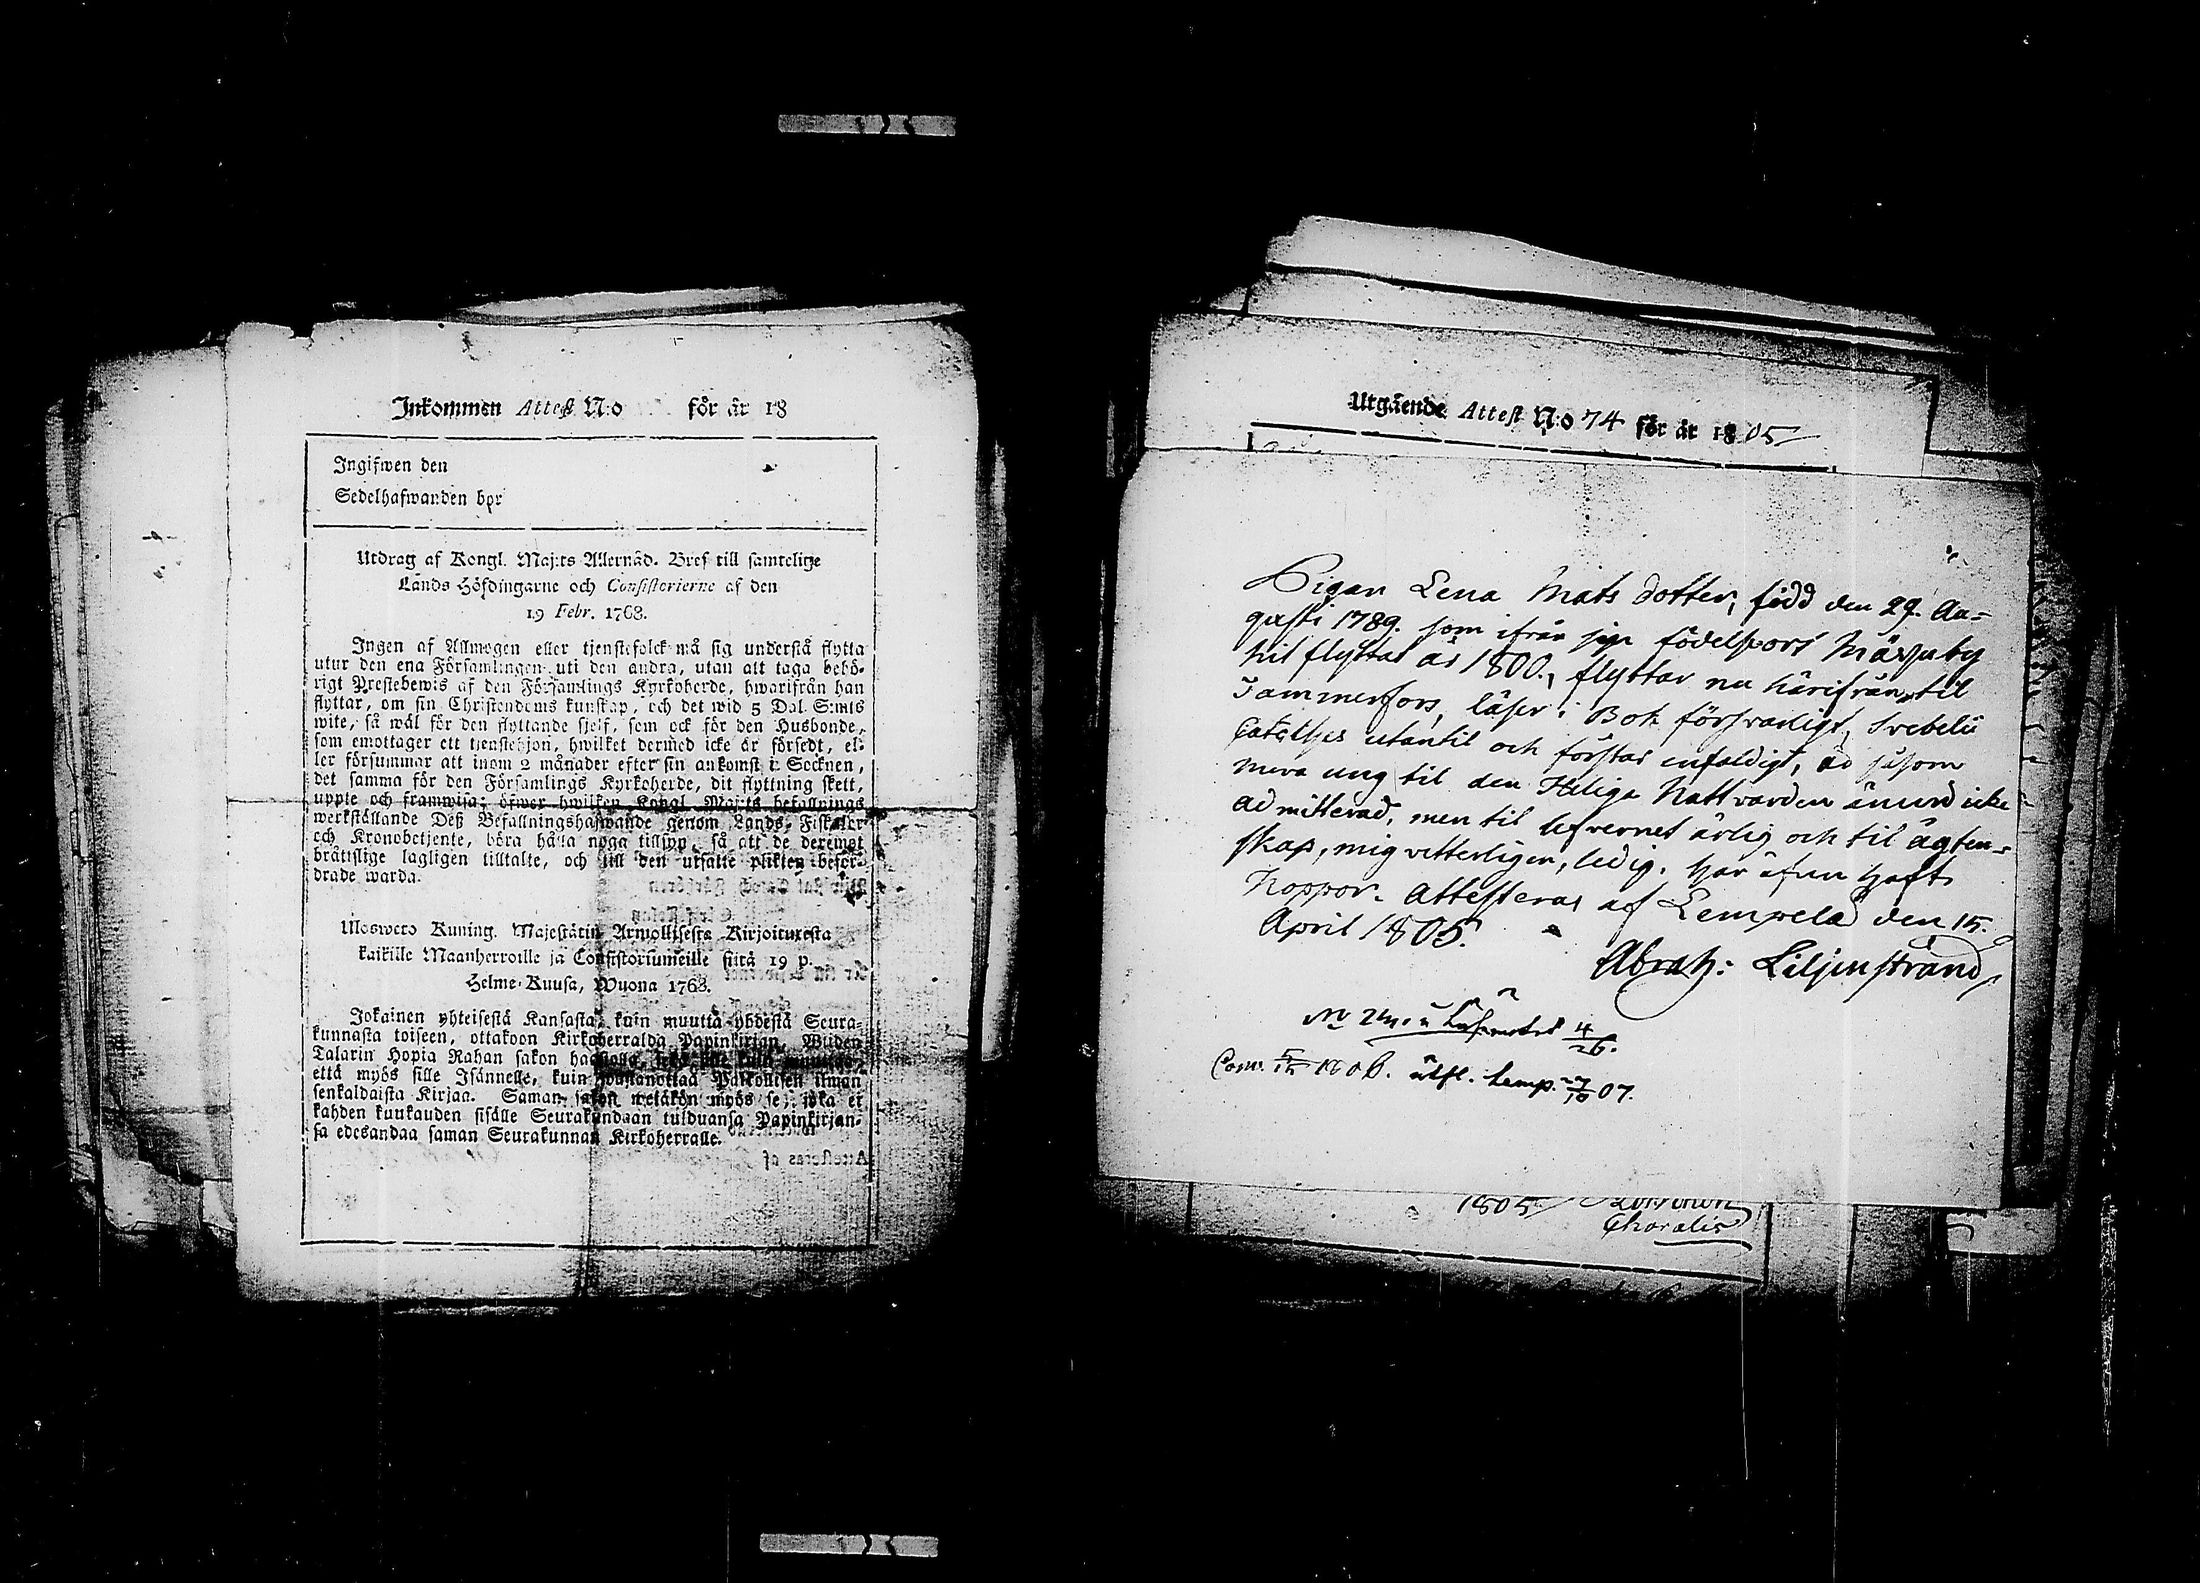 Inkommen Attest N:o för år 18
Ingifwen den
Sedelhafwanden bor
Utdrag af Kongl. Maj:ts Allernåd. Bref till samtelige
Lands Höfdingarne och Consistorierne af den
19 Febr. 1768.
Ingen af Allmogen eller tjenstefolck må sig understå flytta
utur den ena Församlingen uti den andra, utan att taga behö-
rigt Prestebewis af den Församlings Kyrkoherde, hwarifrån han
flyttar, om sin Christendoms kunskap, och det wid 5 Dal. S:mts
wite, så wäl för den flyttande sjelf, som ock för den Husbonde,
som emottager ett tjenstehjon, hwilket dermed icke är försedt, el-
ler försummar att inom 2 månader efter sin ankomst i Socknen,
det samma för den Församlings Kyrkoherde, dit flyttning skett,
uppte och framwisa; öfwer hwilken Kongl. Maj:ts befallnings
werkställande Deß Befallningshafwande genom Lands-Fiskaler
och Kronobetjente, böra hålla noga tillsyn, så att de deremot
bråttslige lagligen tilltalte, och till den utsatte plikten beför-
drade warda.
Ulosweto Kuning. Majestätin Armollisesta Kirjoituxesta
kaikille Maanherroille ja Consistoriumeille siitä 19 p.
Helme-Kuusa, Wuona 1768.
Jokainen yhteisestä Kansasta, kuin muuttä yhdestä Seura-
kunnasta toiseen, ottakoon Kirkoherralda Papinkirjan, Wiiden
Talarin Hopia Rahan sakon
että myös sille Isännelle, kuin ilman
senkaldaista Kirjaa. Saman sakon wetäkön myös se, joka ei
kahden kuukauden sisälle Seurakundaan tulduansa Papinkirjan-
sa edesandaa saman Seurakunnan Kirkoherralle.
Attesteras af
Utgående Attest N:o 74 för år 1805
Pigan Lena Mats dotter, född den 29. Au-
gusti 1789. som ifrån sin födelseort
hit flyttat år 1800., flyttar nu härifrån til
Tammerfors, läser i Bok försvarligt, Svebelii
Catches utantil och förstår enfaldigt, är såsom
mera ung til den Heliga Nattvarden ännu icke
admitterad, men til lefvernet ärlig och til ägten-
skap, mig vitterligen, ledig. har äfven haft
Koppor. Attesteras af Lempelä den 15.
April 1805.
Abrah: Liljenstrand
07.
1805
Choralis